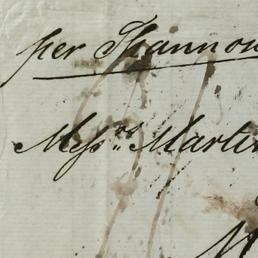 per Shannon
Messrs. Martin
M